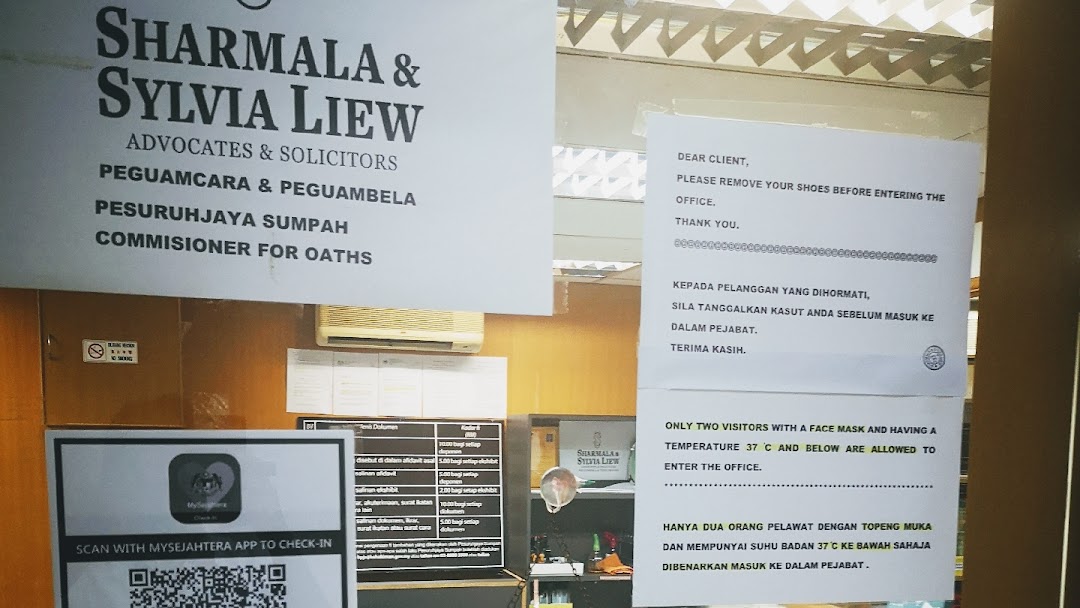 SHARMALA &
SYLVIA LIEW
ADVOCATES & SOLICITORS
PEGUAMCARA & PEGUAMBELA
PESURUHJAYA SUMPAH
COMMISIONER FOR OATHS
DEAR CLIENT,
PLEASE REMOVE YOUR SHOES BEFORE ENTERING THE
OFFICE.
THANK YOU.
KEPADA PELANGGAN YANG DIHORMATI,
SILA TANGGALKAN KASUT ANDA SEBELUM MASUK KE
DALAM PEJABAT.
TERIMA KASIH.
ONLY TWO VISITORS WITH A FACE MASK AND HAVING A
TEMPERATURE 37 °C AND BELOW ARE ALLOWED TO
ENTER THE OFFICE.
HANYA DUA ORANG PELAWAT DENGAN TOPENG MUKA
DAN MEMPUNYAI SUHU BADAN 37°C KE BAWAH SAHAJA
DIBENARKAN MASUK KE DALAM PEJABAT .
NO SMOKING
MySejahtera
Check-in
SCAN WITH MYSEJAHTERA APP TO CHECK-IN
Jenis Dokumen
Kadar fi
(RM)
10.00 bagi setiap
deponen
disebut di dalam afidavit asal
5.00 bagi setiap ekshibit
salinan afidavit
5.00 bagi setiap
deponen
salinan ekshibit
2.00 bagi setiap ekshibit
surat ikatan
10.00 bagi setiap
dokumen
salinan dokumen,
surat ikatan atau surat cara
5.00 bagi setiap
dokumen
SHARMALA &
SYLVIA LIEW